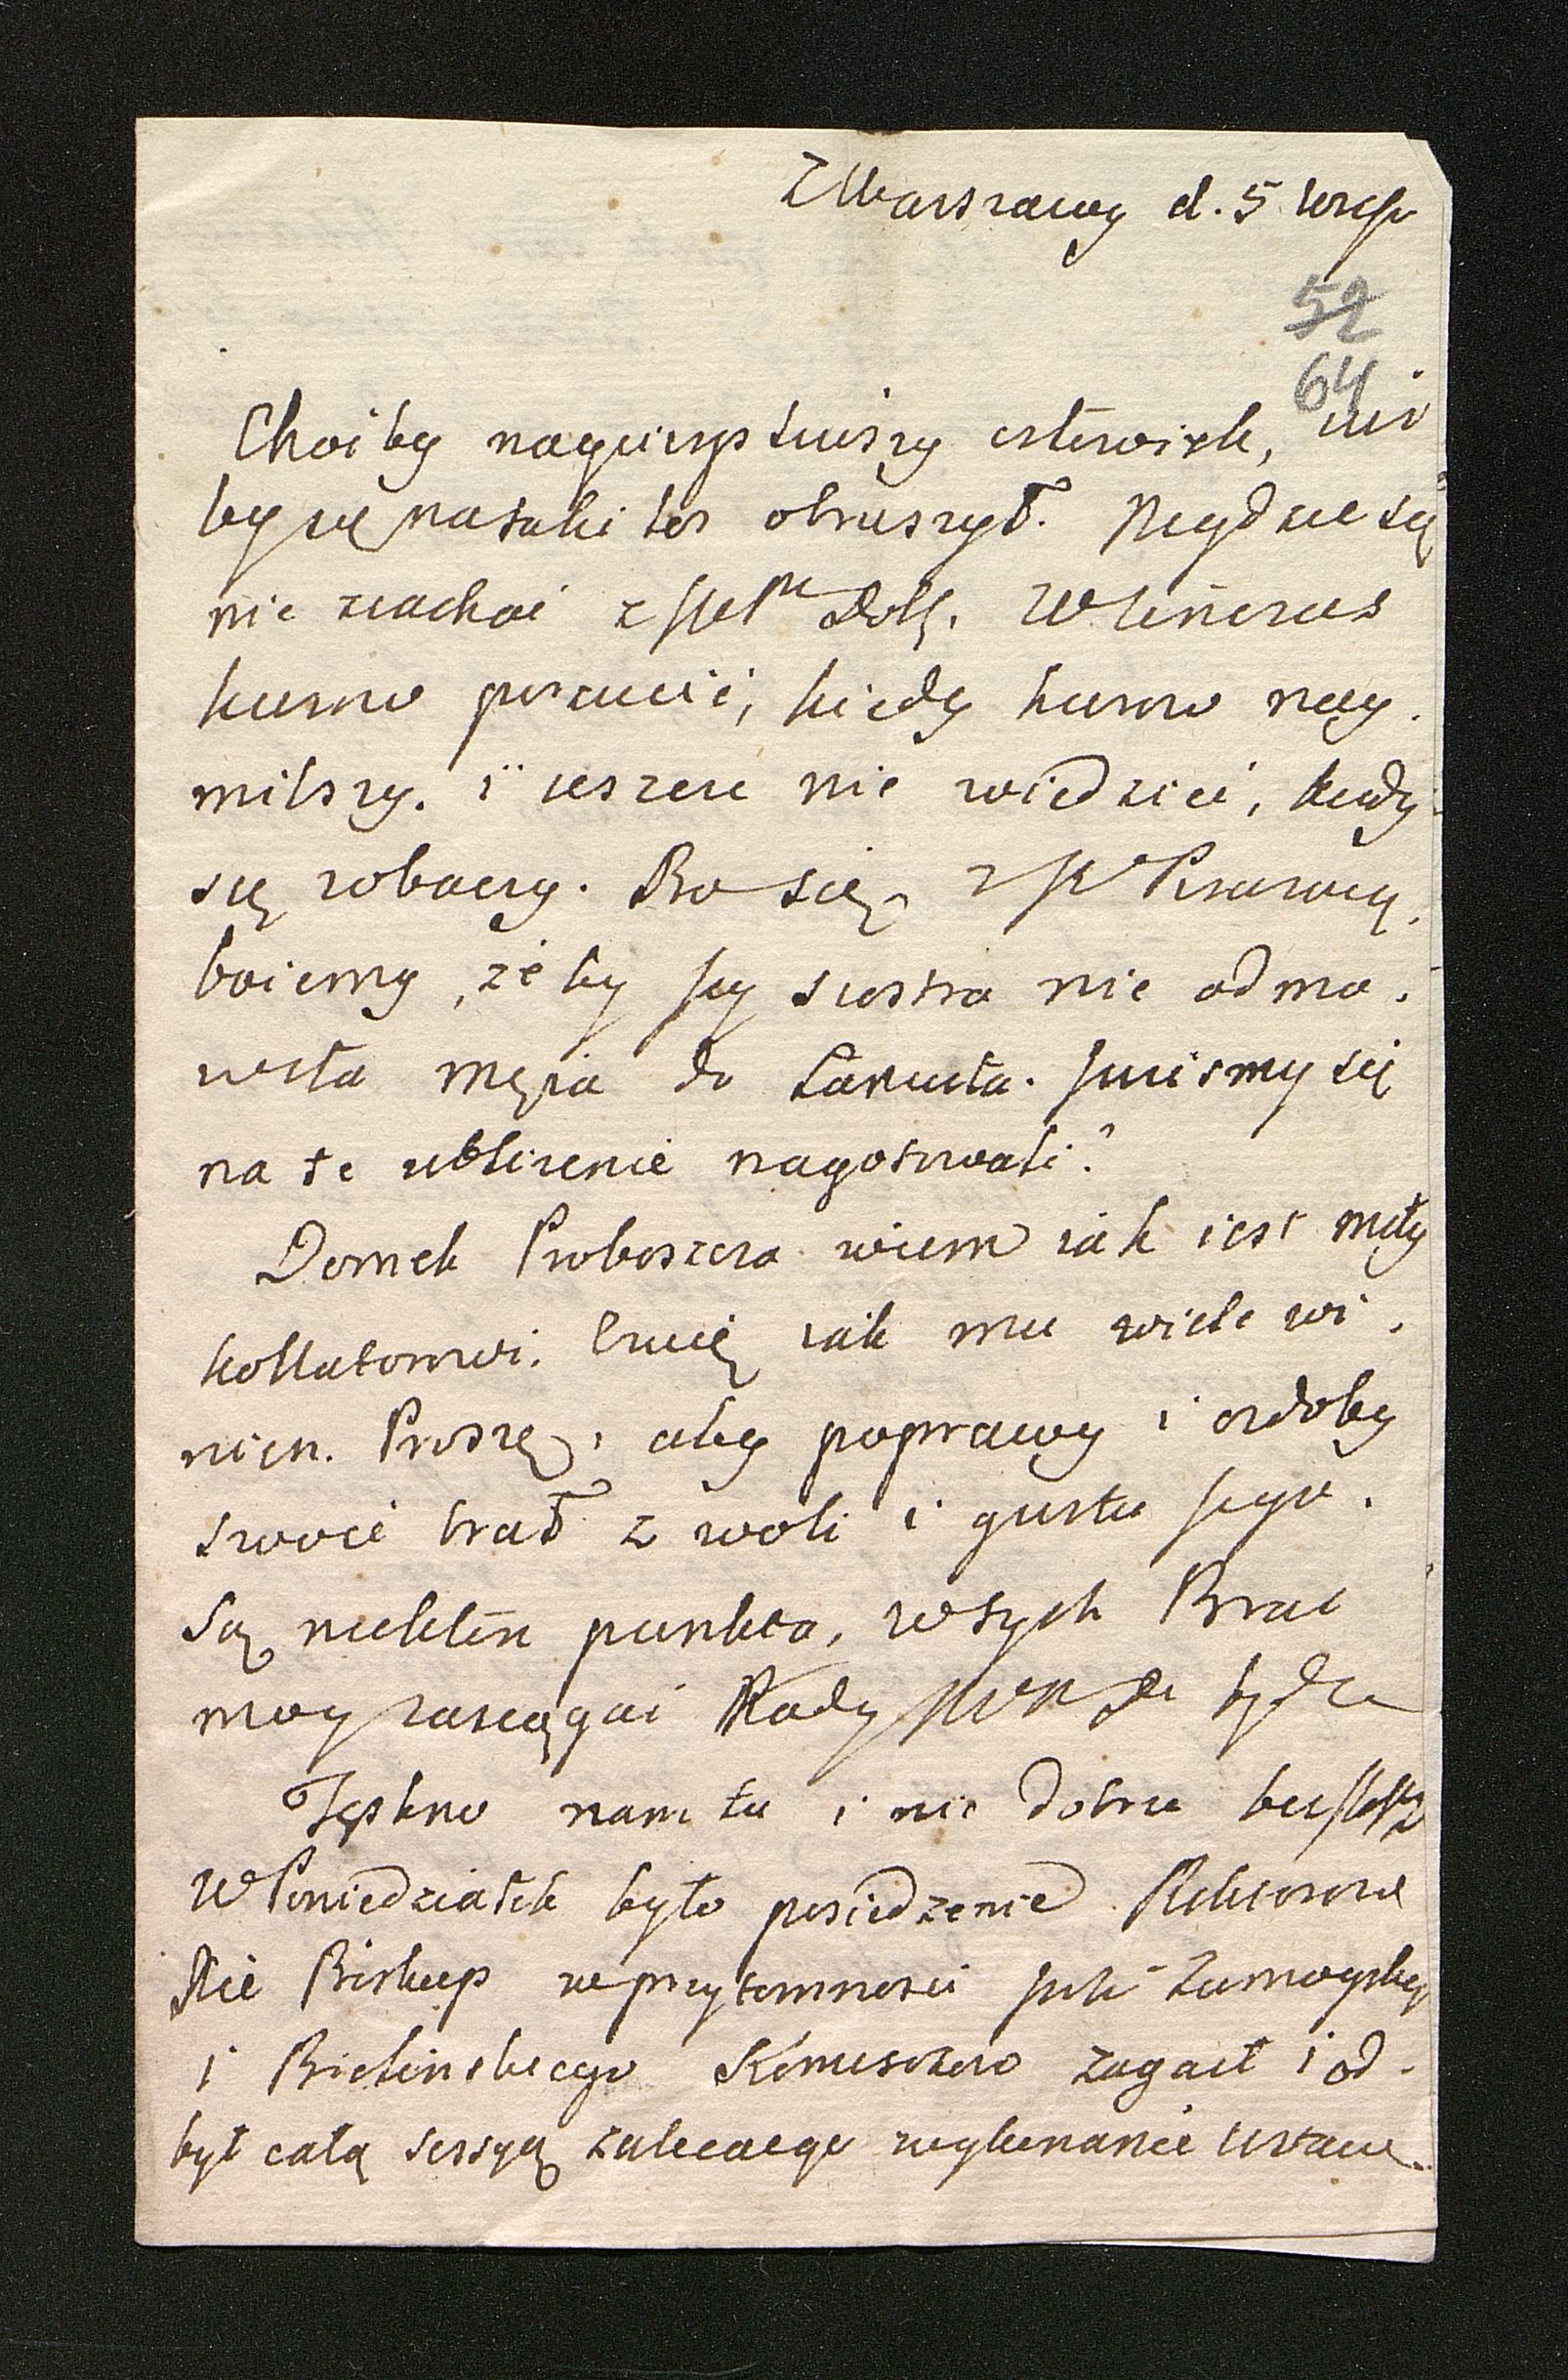 Z Warszawy d. 5 wrześ
52
64
Choćby nayuczyńszy człowiek, nie
by się na taki los obruszył. Nigdzie się
nie ziachać z JW Dob. Wten czas
Kurow porzucić, kiedy Kurow nay.
milszy. i ieszcze nie wiedzieć, kiedy
się zobaczy. Bo się z JW Pisarzową
boiemy, żeby Jey siostra nie odmo.
wiła męża do Łańcuta.
na te zbliżenie nagotowali?
Domek Proboszcza wiem iak iest miły
kollatorowi. Czuię iak mu wiele wi.
nien. Proszę, aby poprawy i ozdoby
swoie brał z woli i gustu Jego.
Są niektóre punkta, w tych Brat
moy zasięgać Rady będzie
Tęskno nam tu i nie dobrze bez
W Poniedziałek było posiedzenie Rektorow
Xże Biskup w przytomności Zamoyskiego
i Bielinskiego zagaił i od.
był całą sessyą zalecaiąc wykonanie ustaw.